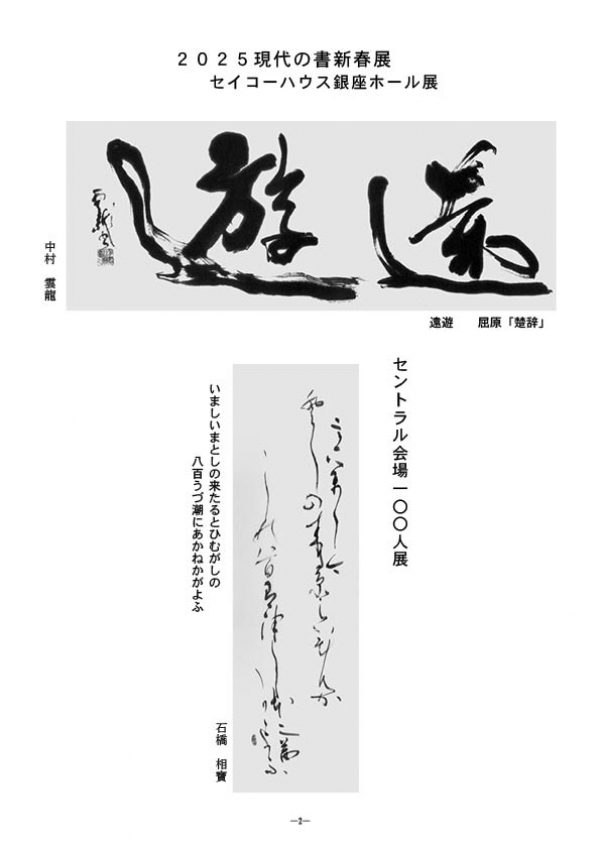 ２０２５現代の書新春展
セイコーハウス銀座ホール展
遠遊
中村　雲龍
遠遊　屈原「楚辞」
セントラル会場一〇〇人展
いましいまとしの来たるとひむがしの
八百うづ潮にあかねかがよふ
石橋　相寶
―2―